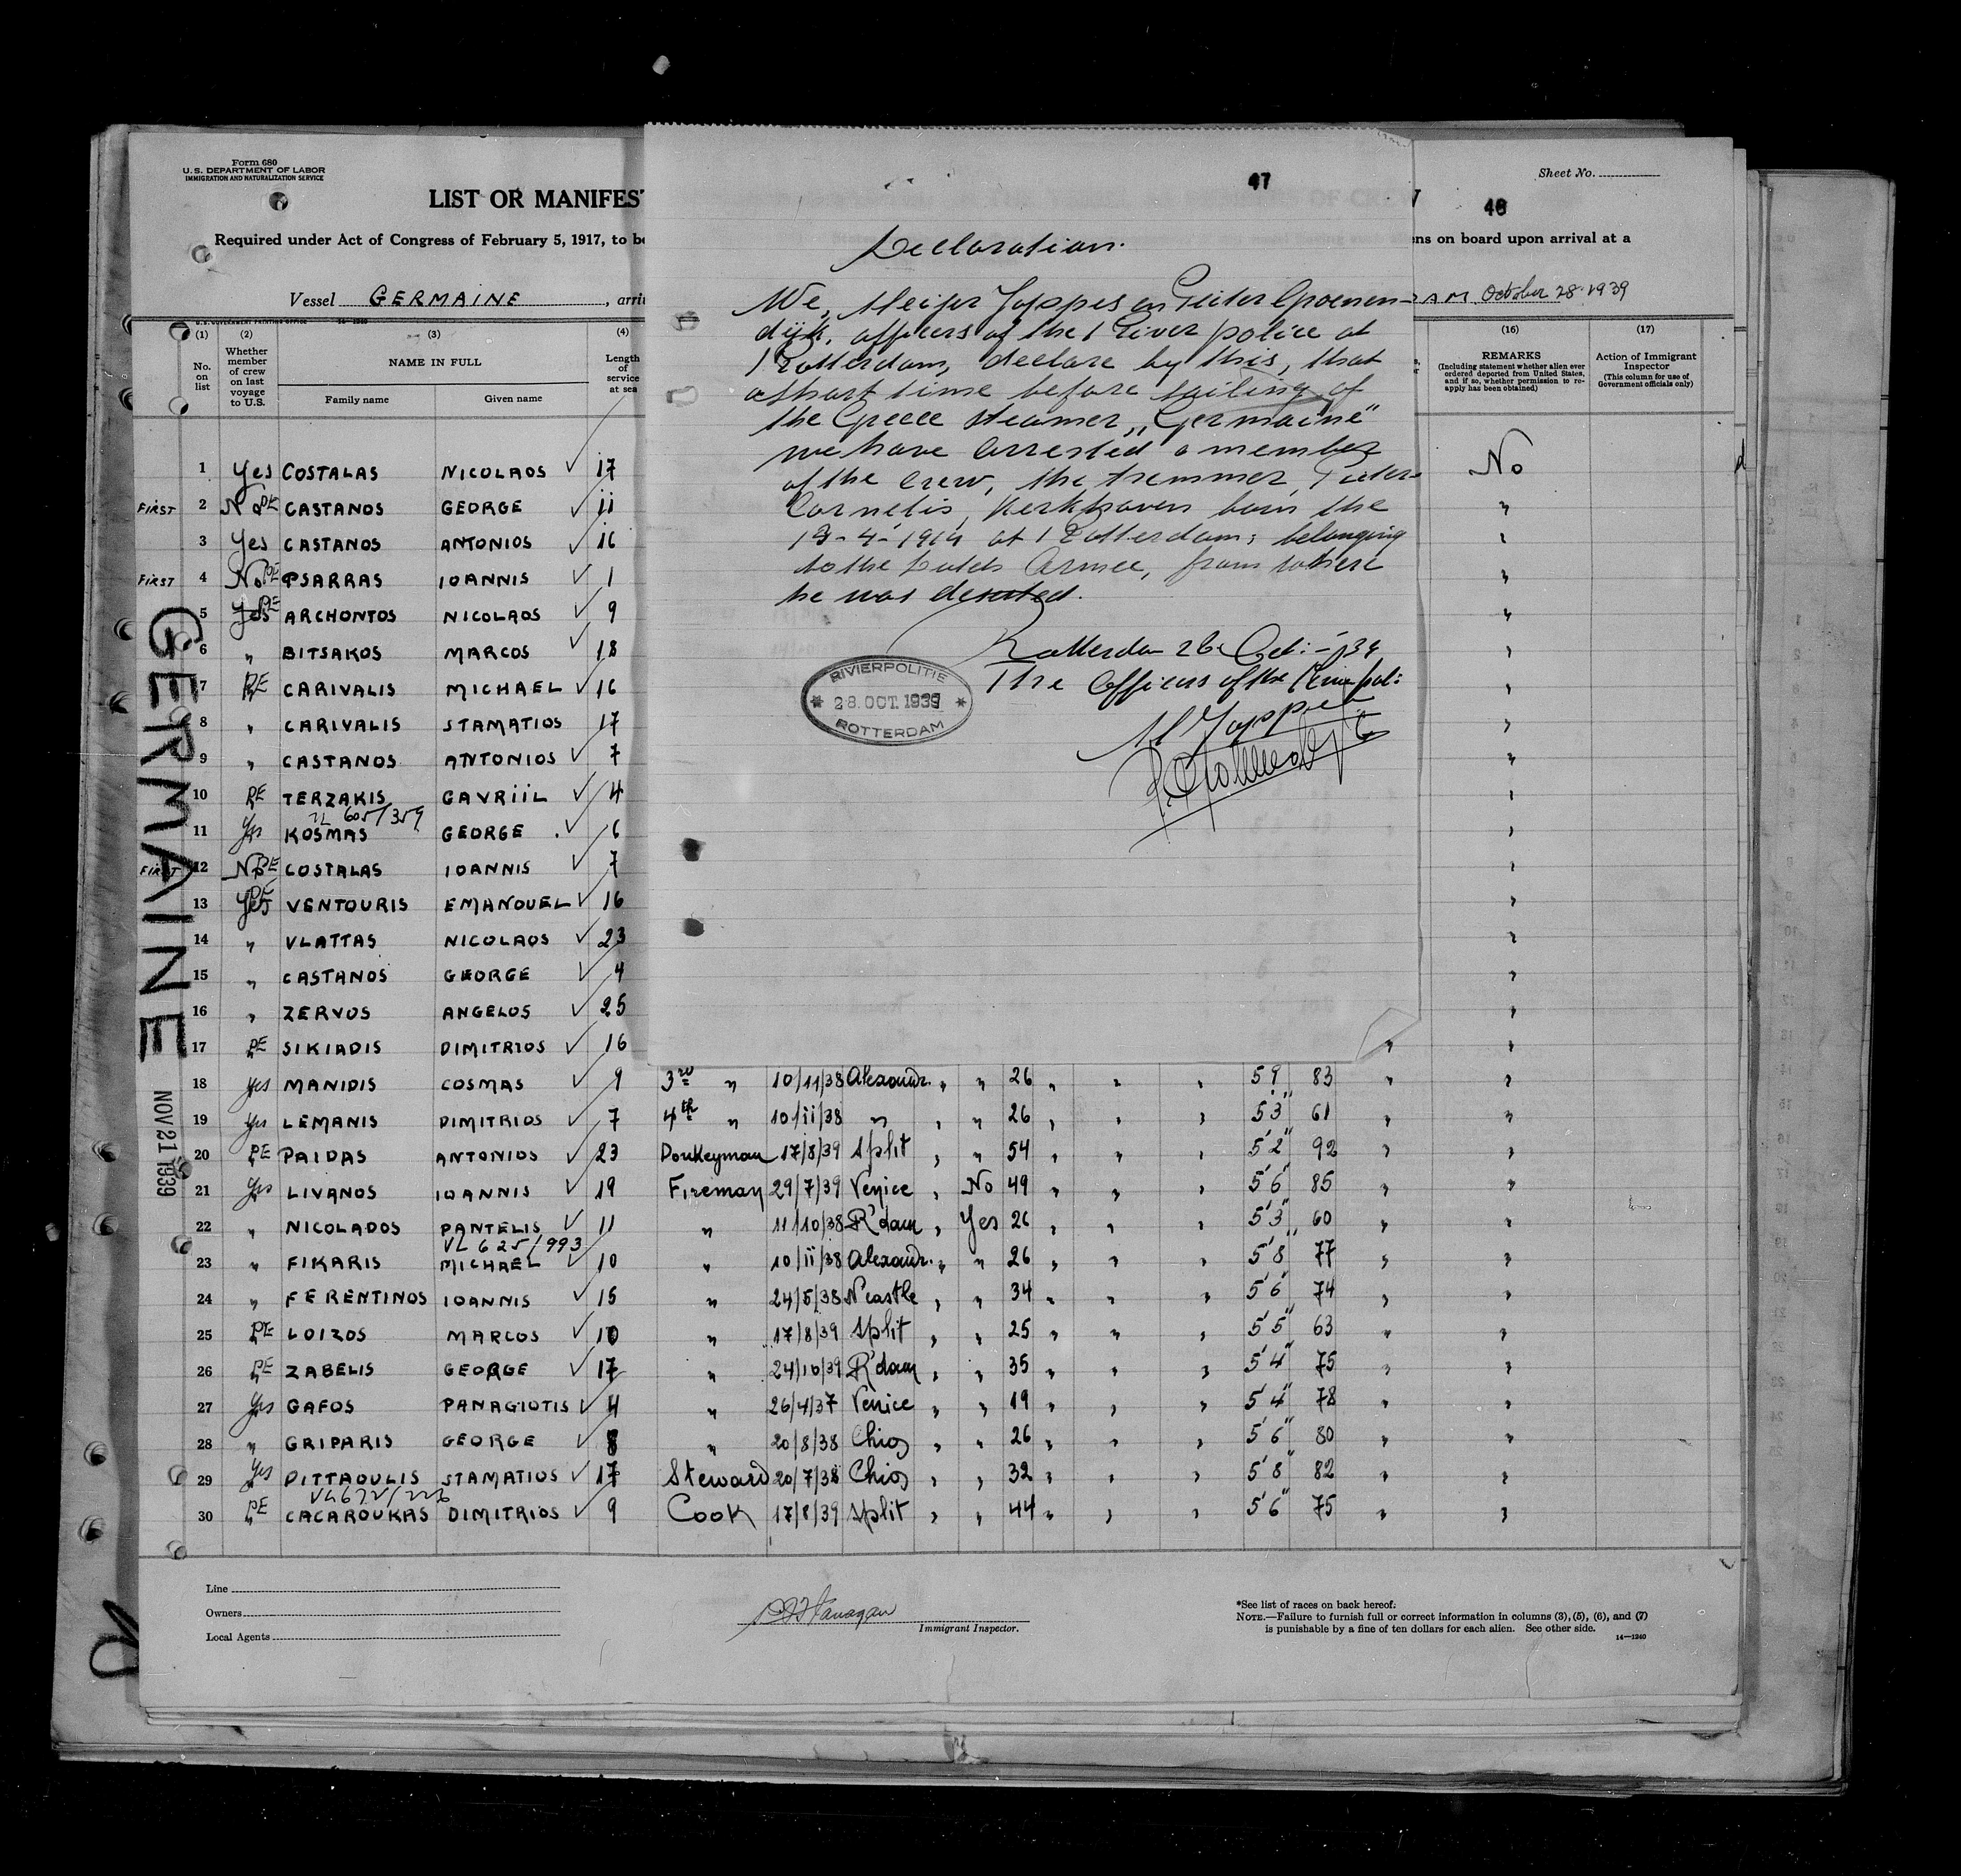 Form 680
U. S. DEPARTMENT OF LABOR
IMMIGRATION AND NATURALIZATION SERVICE
Sheet No.
LIST OR MANIFEST
48
Required under Act of Congress of February 5, 1917, to be
ens on board upon arrival at a
Vessel GERMAINE, arri
DAM October 28. 1939
47
Declaration.
We, Meijer Joppes en Pieter Groenen-
dijk, officers of the River police at
Rotterdam, declare by this, that
a short time before sailing of
the Greece steamer „Germaine"
we have arrested a member
of the crew, the tremmer, Pieter
Cornelis, Kerkhoven born the
13-4-1914 at Rotterdam; belonging
to the Dutch Armee, from where
he was deserted.
Rotterdam 26 Oct: - '39
The Officers of the
RIVIERPOLITIE
28. OCT. 1939
ROTTERDAM
M Joppes
(1) (2) (3) (4) (16) (17)
No. on list
Whether member of crew on last voyage to U.S.
NAME IN FULL
Family name Given name
Length of service at sea
REMARKS
(Including statement whether alien ever ordered deported from United States, and if so, whether permission to reapply has been obtained)
Action of Immigrant Inspector
(This column for use of Government officials only)
1 Yes COSTALAS NICOLAOS ✓ 17 No
FIRST 2 No PE CASTANOS GEORGE ✓ ii "
3 Yes CASTANOS ANTONIOS ✓ 16 "
FIRST 4 No PE PSARRAS IOANNIS ✓ 1 "
5 Yes PE ARCHONTOS NICOLAOS ✓ 9 "
6 " BITSAKOS MARCOS ✓ 18 "
7 PE CARIVALIS MICHAEL ✓ 16 "
8 " CARIVALIS STAMATIOS 17 "
9 " CASTANOS ANTONIOS ✓ 7 "
10 PE TERZAKIS GAVRIIL ✓ 4 "
605/359
11 Yes KOSMAS GEORGE ✓ 6 "
FIRST 12 No PE COSTALAS IOANNIS ✓ 7 "
13 Yes PE VENTOURIS EMANOUEL ✓ 16 "
14 " VLATTAS NICOLAOS ✓ 23 "
15 " CASTANOS GEORGE ✓ 4 "
16 " ZERVOS ANGELOS ✓ 25 "
17 PE SIKIADIS DIMITRIOS ✓ 16 " "
18 Yes MANIDIS COSMAS ✓ 9 3rd " 10/11/38 Alexandr. " " 26 " " " 5 9 83 " "
19 Yes LEMANIS DIMITRIOS ✓ 7 4th " 10/ii/38 " " " 26 " " " 5'3" 61 " "
20 PE PAIDAS ANTONIOS ✓ 23 Donkeyman 17/8/39 Split " " 54 " " " 5'2" 92 " "
21 Yes LIVANOS IOANNIS ✓ 19 Fireman 29/7/39 Venice " No 49 " " " 5'6" 85 " "
22 " NICOLADOS PANTELIS ✓ 11 " 11/10/38 R'dam " Yes 26 " " " 5'3" 60 " "
VL 625/993
23 " FIKARIS MICHAEL ✓ 10 " 10/ii/38 Alexandr. " " 26 " " " 5'8" 77 " "
24 " FERENTINOS IOANNIS ✓ 15 " 24/5/38 N'castle " " 34 " " " 5'6" 74 " "
25 PE LOIZOS MARCOS ✓ 10 " 17/8/39 Split " " 25 " " " 5'5" 63 " "
26 PE ZABELIS GEORGE ✓ 17 " 24/10/39 R'dam " " 35 " " " 5'4" 75 " "
27 Yes GAFOS PANAGIOTIS ✓ 4 " 26/4/37 Venice " " 19 " " " 5'4" 78 " "
28 " GRIPARIS GEORGE ✓ 8 " 20/8/38 Chios " " 26 " " " 5'6" 80 " "
29 Yes PITTAOULIS STAMATIOS ✓ 17 Steward 20/7/38 Chios " " 32 " " " 5'8" 82 " "
30 PE CACAROUKAS DIMITRIOS ✓ 9 Cook 17/8/39 Split " " 44 " " " 5'6" 75 " "
GERMAINE
NOV 21 1939
Line
Owners
Local Agents
Immigrant Inspector.
*See list of races on back hereof.
NOTE.—Failure to furnish full or correct information in columns (3), (5), (6), and (7)
is punishable by a fine of ten dollars for each alien. See other side.
14—1240